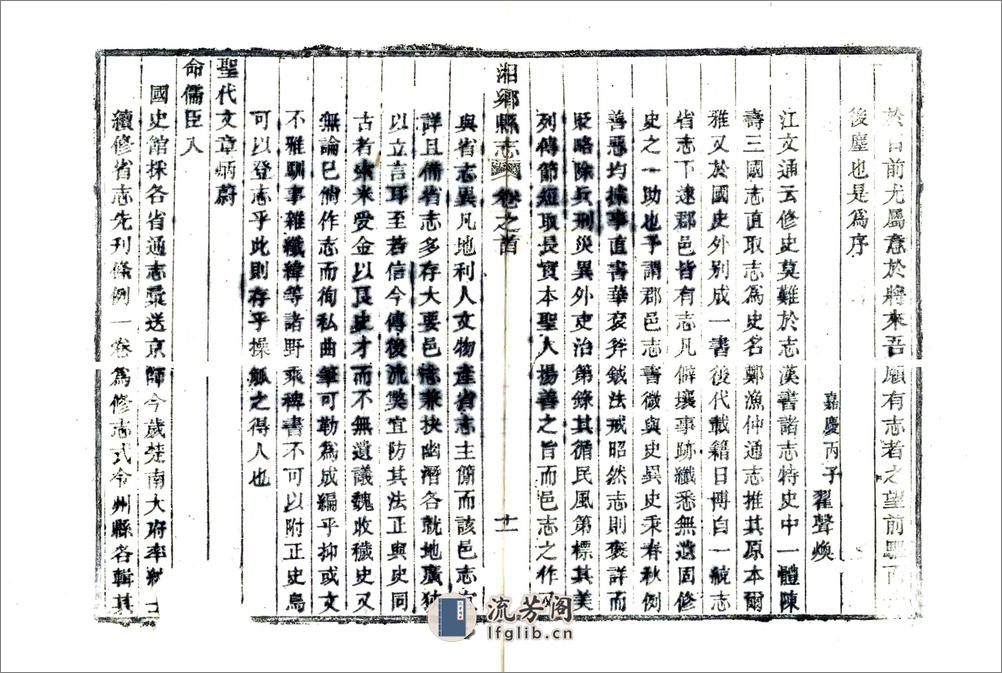 於目前尤屬意於將來吾願有志者之望前驅而
後塵也是爲序
嘉慶丙子翟聲煥
江文通云修史莫難於志漢書諸志特史中一體陳
壽三國志直取志爲史名鄭漁仲通志推其原本爾
雅又於國史外別成一書後代載籍日博自一統志
省志下逮郡邑皆有志凡僻壤事跡纖悉無遺固修
史之一助也予謂郡邑志書微與史異史秉春秋例
善惡均據事直書華袞斧鉞法戒昭然志則褒詳而
貶略除兵刑災異外吏治第錄其循民風第標其美
列傳節短取長實本聖人揚善之旨而邑志之作又
湘鄉縣志 卷之首 十一
與省志異凡地利人文物產省志主簡而該邑志宜
詳且備省志多存大要邑志兼抉幽潛各就地廣狹
以立言耳至若信今傳後流獘宜防其法正與史同
古若索米受金以良史才而不無遺議魏收穢史又
無論已倘作志而徇私曲筆可勒爲成編乎抑或文
不雅馴事雜纖緯等諸野乘稗書不可以附正史烏
可以登志乎此則存乎操觚之得人也
聖代文章炳蔚
命儒臣入
國史館採各省通志彙送京師今歲楚南大府奉
續修省志先刊條例一卷爲修志式令州縣各輯其
流芳阁
lfglib.cn